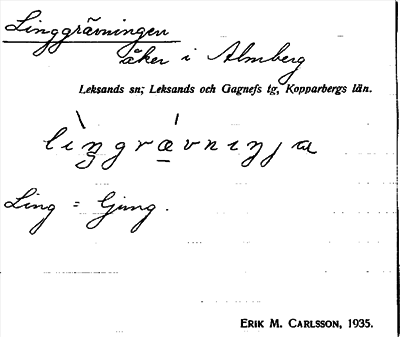 Linggrävningen
åker i Almberg
Leksands sn; Leksands och Gagnefs tg, Kopparbergs län.
Ling = Ljung.
ERIK M. CARLSSON, 1935.